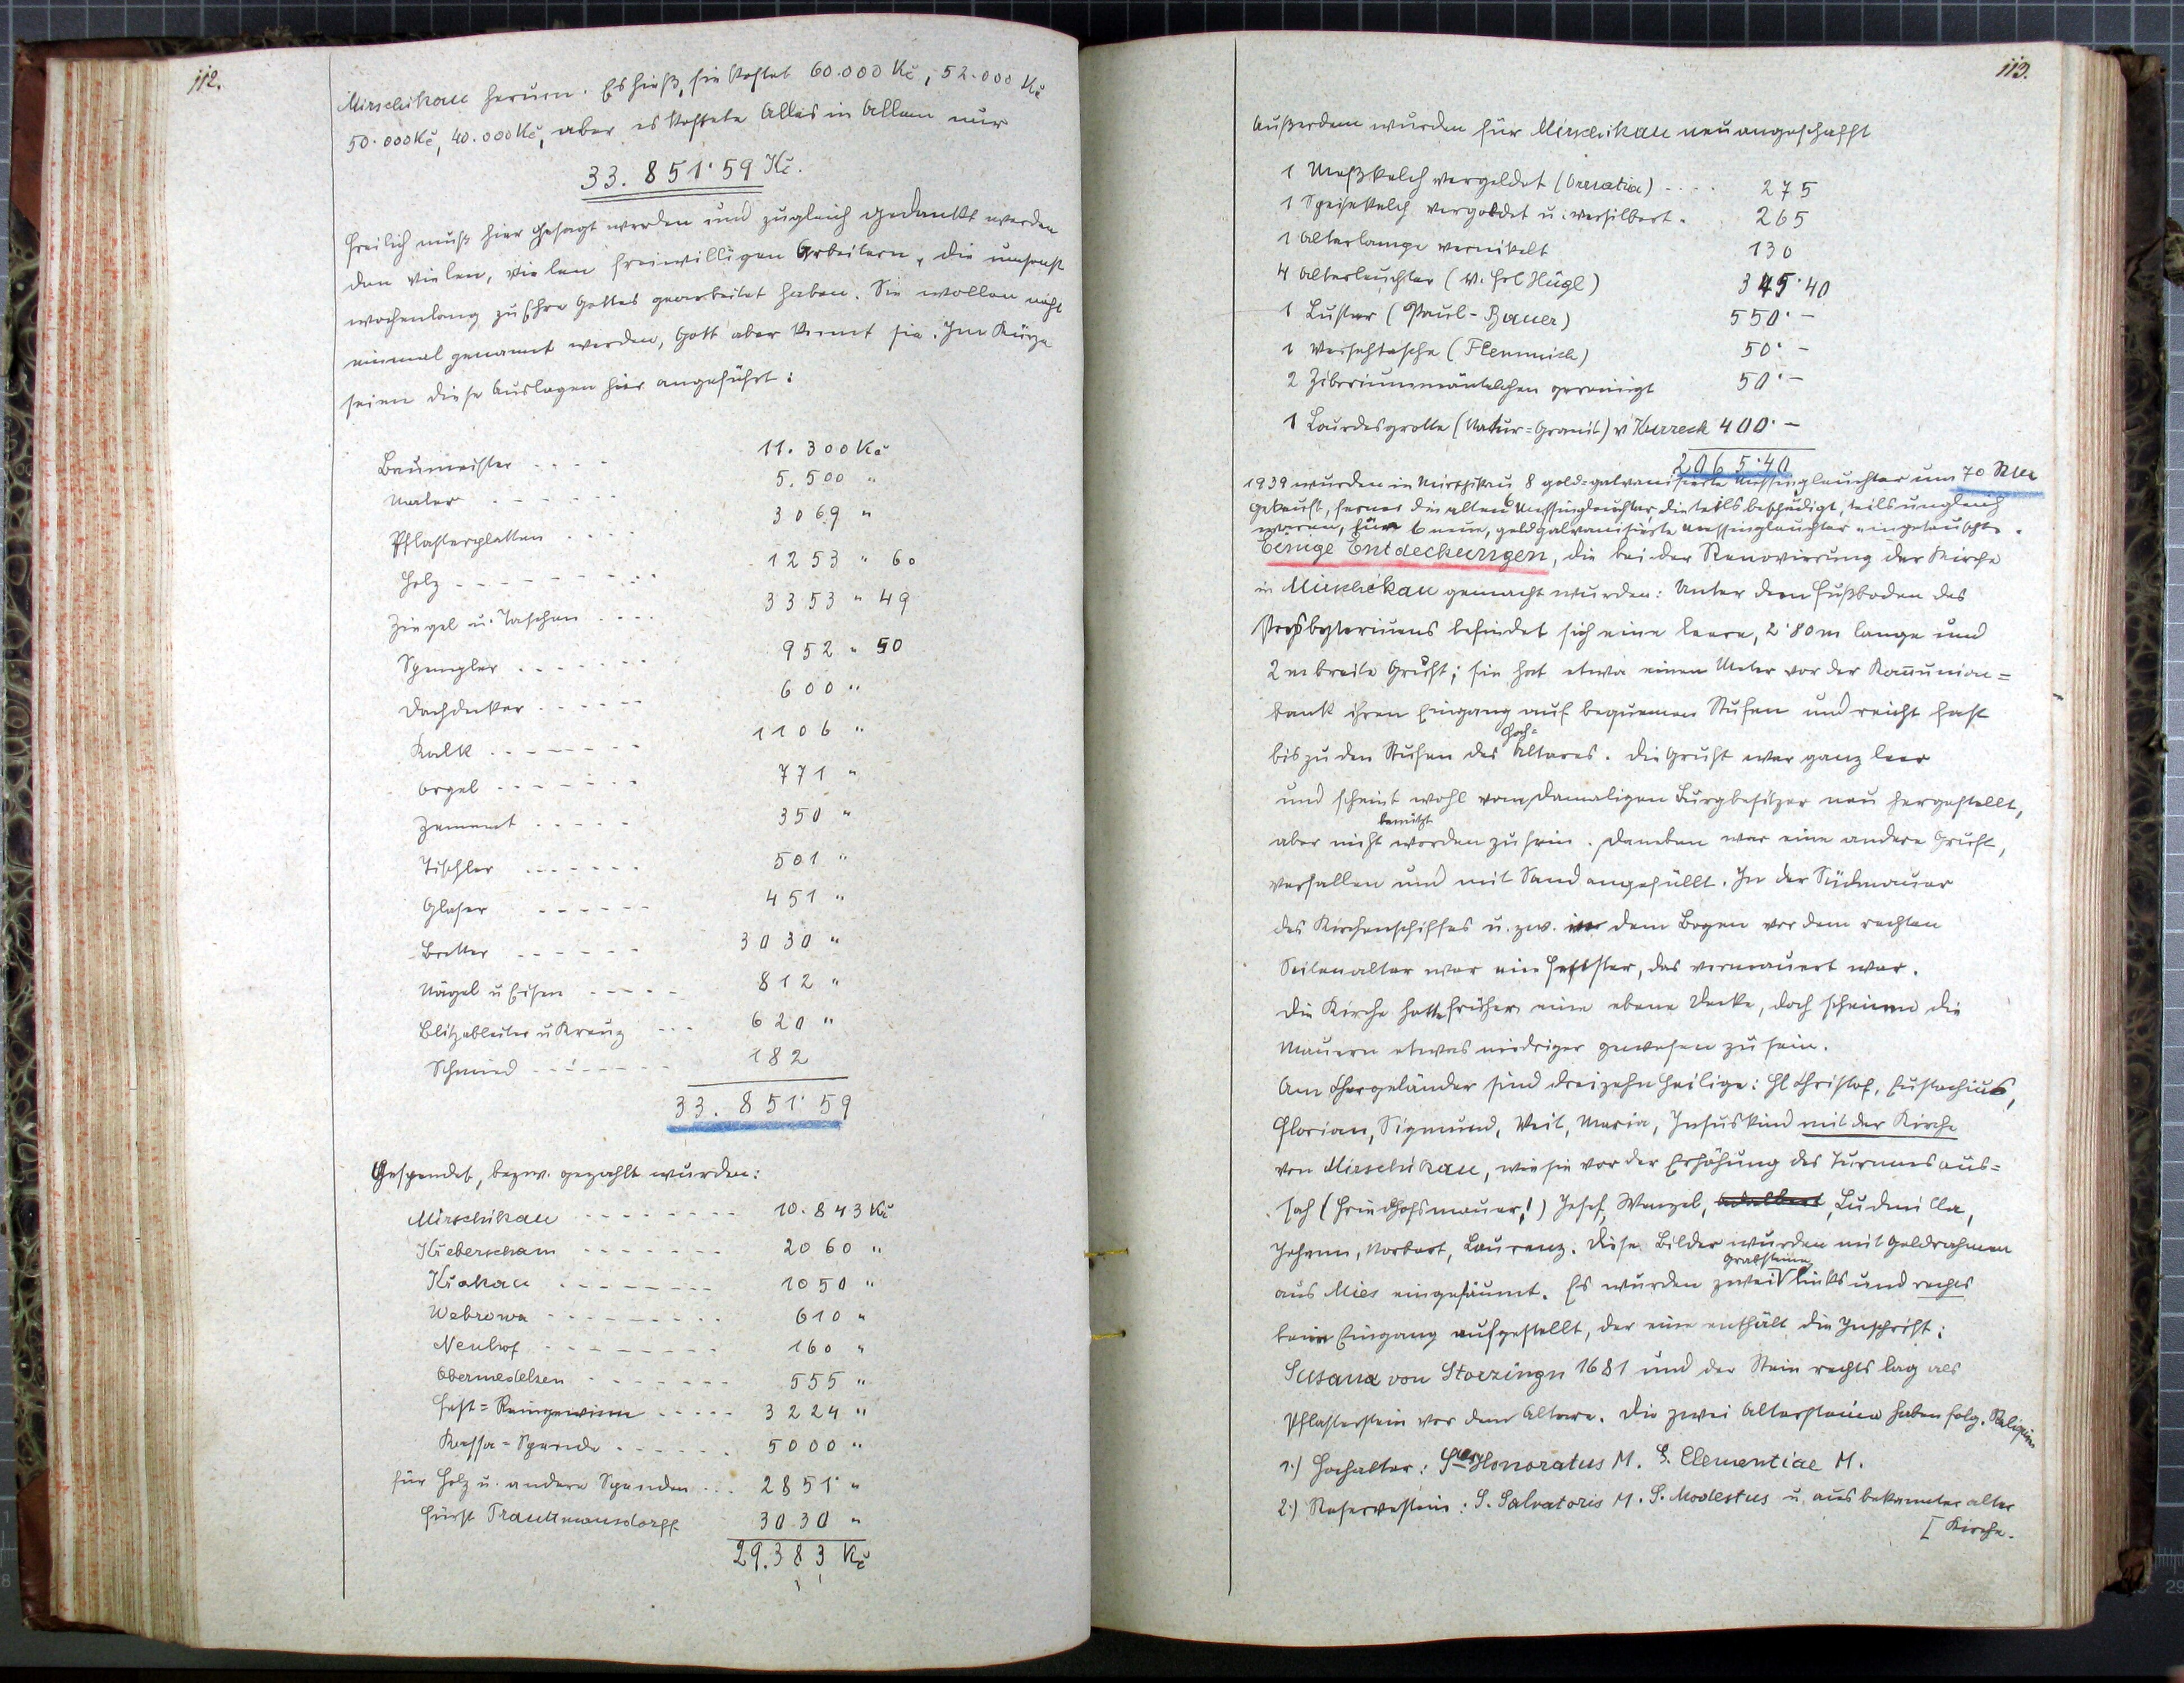 112.
Mirschikau herum. Es hieß, sie kostet 60.000 Kč, 52.000 Kč
50.000 Kč, 40.000 Kč, aber es kostete Alles in Allem nur
33.851·59 Kč.
Freilich muß hier gesagt werden und zugleich gedankt werden
den vielen, vielen freiwilligen Arbeitern, die umsonst
wochenlang zu Ehre Gottes gearbeitet haben. Sie wollen nicht
einmal genannt werden, Gott aber kennt sie. In Kürze
seien diese Auslagen hier angeführt:
Baumeister .... 11.300 Kč
Maler ...... 5.500 "
Pflasterplatten .... 3069 "
Holz ......... 1253 " 60
Ziegel u. Taschen .... 3353 " 49
Spengler ....... 952 " 50
Dachdecker ...... 600 "
Kalk ....... 1106 "
Orgel ....... 771 "
Zement ..... 350 "
Tischler ...... 501 "
Glaser ...... 451 "
Bretter ...... 3030 "
Nägel u Eisen ..... 812 "
Blitzableiter u Kreuz ... 620 "
Schmied ....... 182
33.851·59
Gespendet, bezw. gezahlt wurden:
Mirschikau ........ 10.843 Kč
Kscheberscham ....... 2060 "
Kšakau ........ 1050 "
Webrowa ......... 610 "
Neuhof ........ 160 "
Obermedelzen ....... 555 "
Fest=Reingewinn ..... 3224 "
Kassa=Spende ...... 5000 "
für Holz u. andere Spenden ... 2851· "
Fürst Trauttmansdorff 3030 "
29.383 Kč
113.
Außerdem wurden für Mirschikau neu angeschafft
1 Meßkelch vergoldet (Ornatia) .... 275
1 Speisekelch vergoldet u. versilbert. 265
1 Altarlampe vernikelt 130
4 Altarleuchter (v. Frl Hügl) 345·40
1 Luster (Paul-Bauer) 550·-
1 Versehtasche (Flemmich) 50·-
2 Ziboriummäntelchen gereinigt 50·-
1 Lourdesgrotte (Natur=Granit) v Kurresch 400·-
2065·40
1939 wurden in Mirschikau 8 gold=galvanisierte Messingleuchter um 70 RM
gekauft, ferner die alten 6 Messingleuchter die teils beschädigt, teils ungleich
waren, für 6 neue, goldgalvanisierte Messingleuchter eingetauscht.
Einige Entdeckungen, die bei der Renovierung der Kirche
in Mirschikau gemacht wurden: Unter dem Fußboden des
Presbyteriums befindet sich eine leere, 2·80 m lange und
2 m breite Gruft; sie hat etwa einen Meter vor der Kommunion=
bank ihren Eingang auf bequemen Stufen und reicht fast
bis zu den Stufen des Hoch=Altares. Die Gruft war ganz leer
und scheint wohl vom damaligen Burgbesitzer neu hergestellt,
aber nicht benützt worden zu sein. Daneben war eine andere Gruft,
verfallen und mit Sand angefüllt. In der Südmauer
des Kirchenschiffes u. zw. in dem Bogen vor dem rechten
Seitenaltar war ein Fenster, das vermauert war.
Die Kirche hatte früher eine ebene Decke, doch scheinen die
Mauern etwas niedriger gewesen zu sein.
Am Chorgeländer sind dreizehn Heilige: Hl Christof, Eustachius,
Florian, Sigmund, Veit, Maria, Jesuskind mit der Kirche
von Mirschikau, wie sie vor der Erhöhung des Turmes aus=
sah (Friedhofsmauer!) Josef, Wenzel, Adalbert, Ludmilla,
Johann, Norbert, Laurenz. Diese Bilder wurden mit Goldrahmen
aus Mies eingesäumt. Es wurden zwei Grabsteine links und rechts
beim Eingang aufgestellt, der eine enthält die Inschrift:
Susana von Storzingn 1681 und der Stein rechts lag als
Pflasterstein vor dem Altare. Die zwei Altarsteine haben folg. Reliquien
1.) Hochaltar: S Honoratus M. S. Clementiae M.
2.) Reservestein: S. Salvatoris M. S. Modestus u. aus bekannter alter
[Kirche.